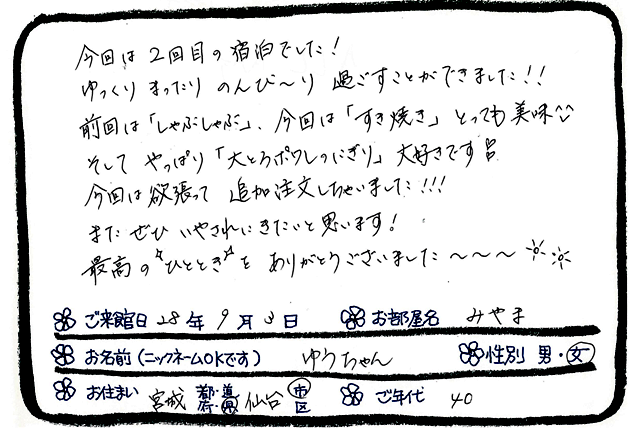 今回は2回目の宿泊でした!
ゆっくりまったりのんび〜り過ごすことができました!!
前回は「しゃぶしゃぶ」、今回は「すき焼き」とっても美味^^
そしてやっぱり「大とろポワレのにぎり」大好きです
今回は欲張って追加注文しちゃいました!!!
またぜひいやされにきたいと思います!
最高の"ひととき"をありがとうございました〜〜〜
ご来館日 28年 9月 3日 お部屋名 みやま
お名前(ニックネームOKです) ゆうちゃん 性別 男・女
お住まい 宮城 都・道・府・県 仙台 市区 ご年代 40